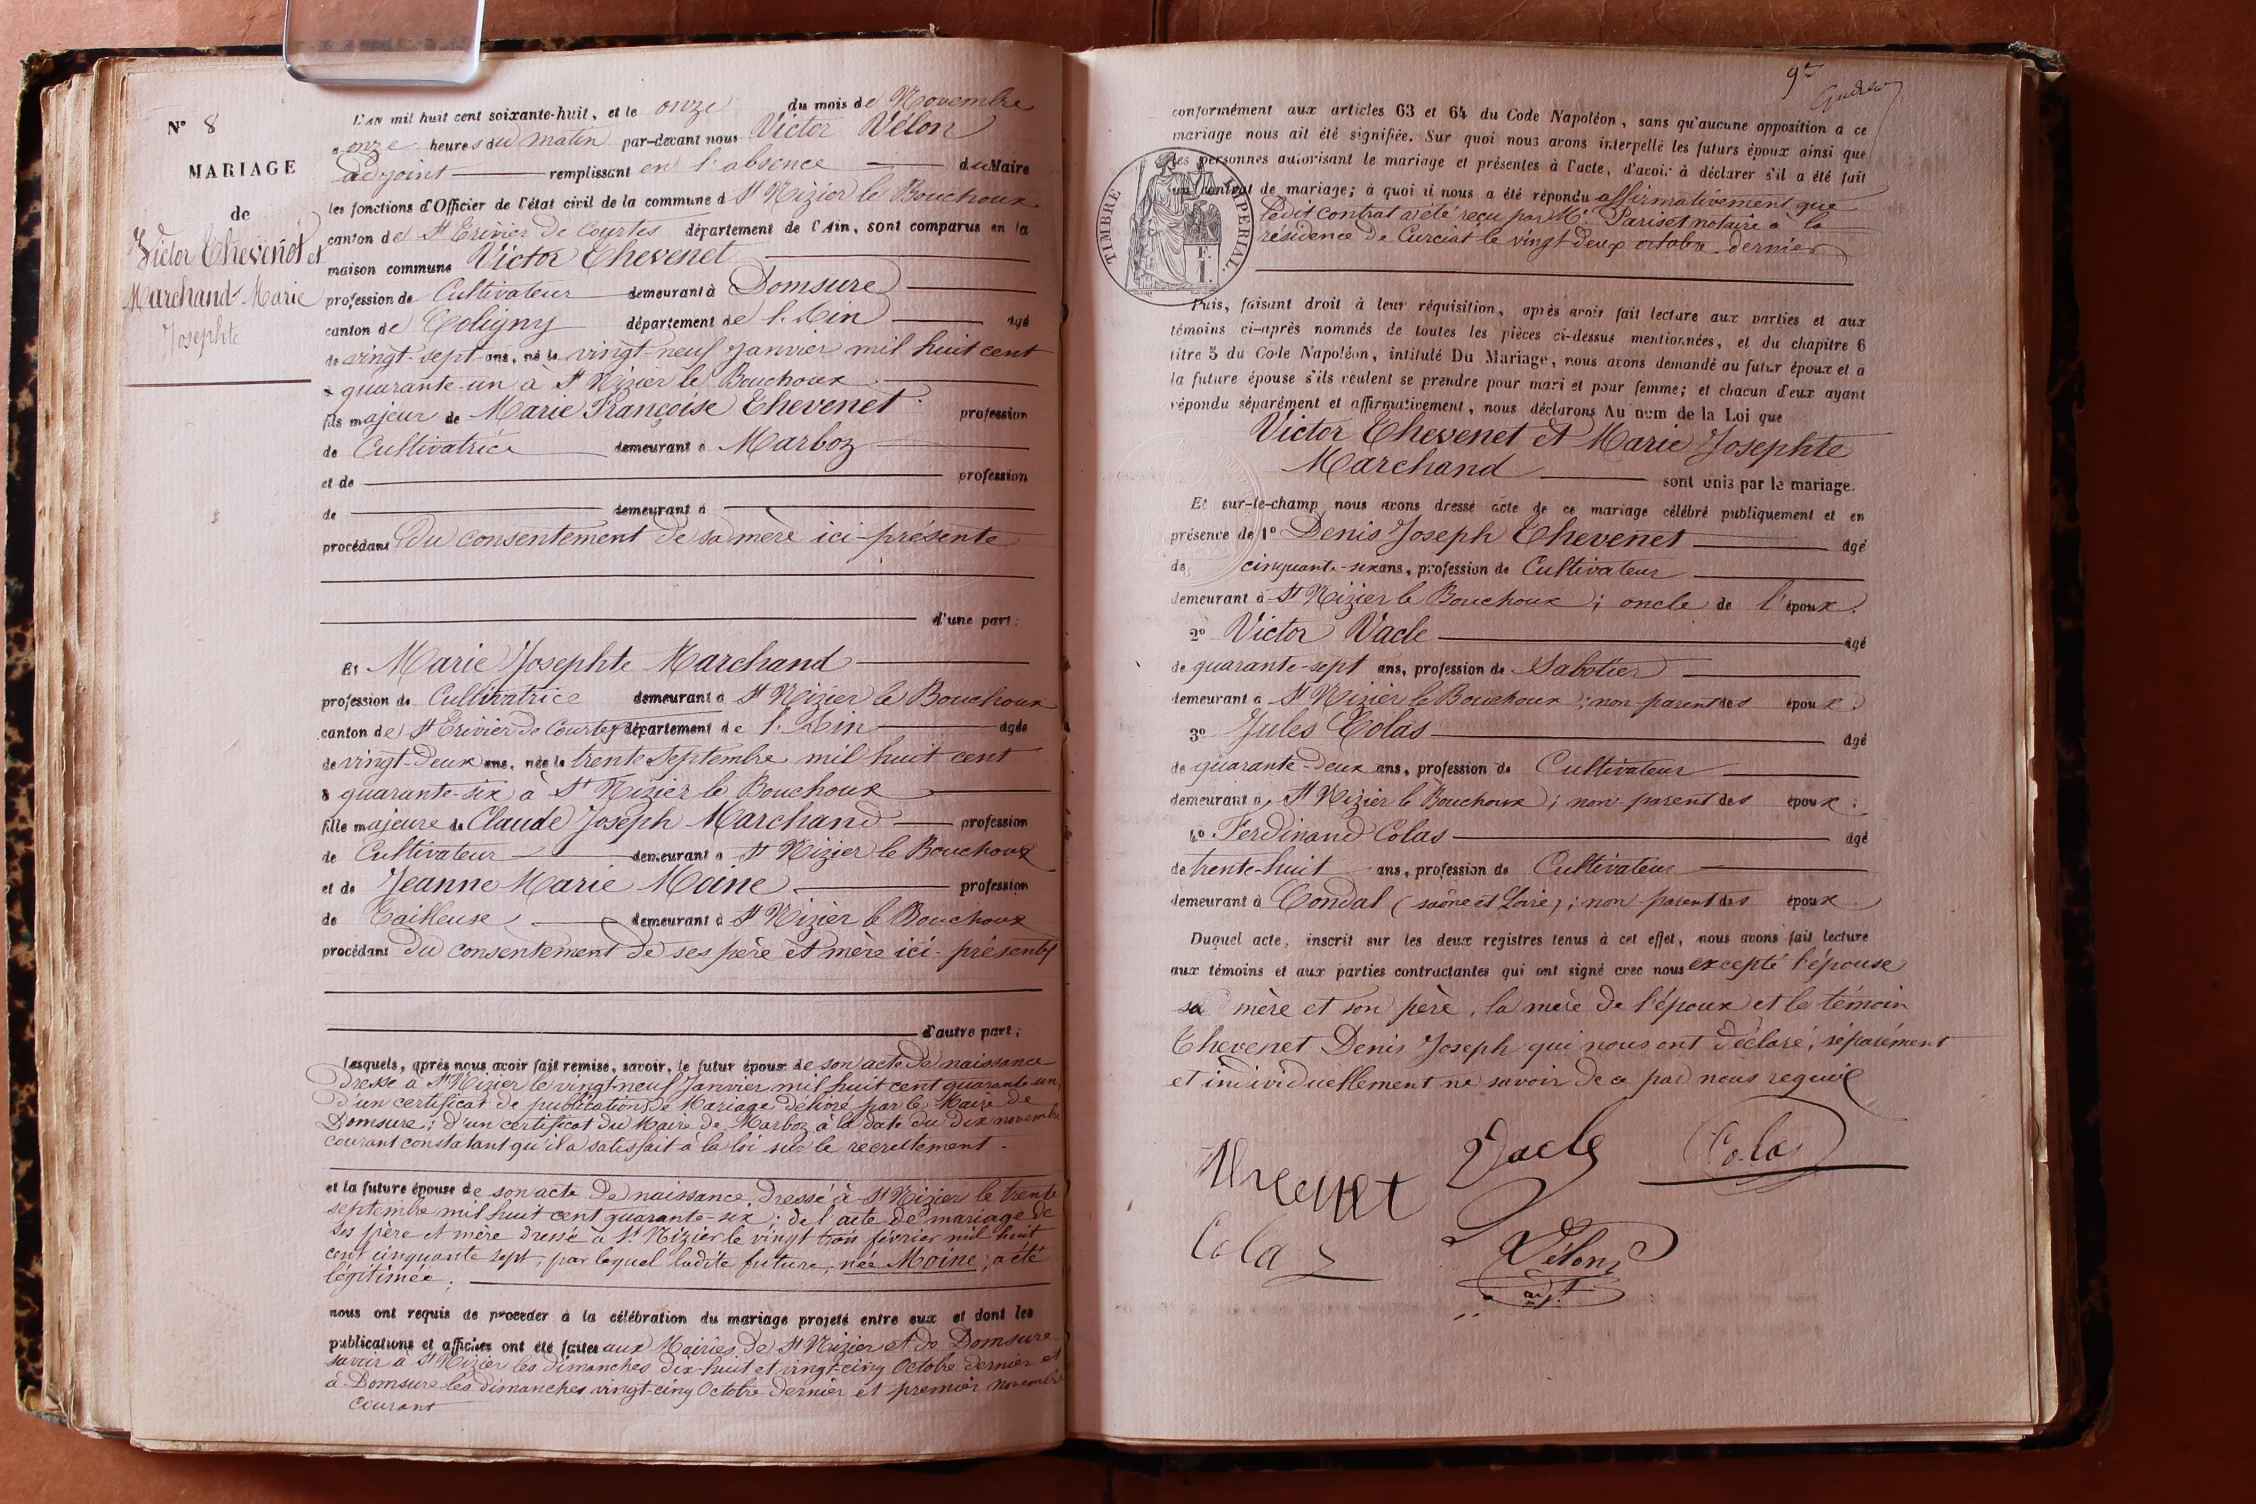 N° 8
MARIAGE
de
Victor Chevenet et
Marchand Marie
Josephte
L'AN mil huit cent soixante-huit, et le onze du mois de Novembre
à onze heures du matin par-devant nous Victor Vélon
adjoint remplissant en l'absence du Maire
les fonctions d'Officier de l'état civil de la commune d St Nizier le Bouchoux
canton de St Trivier de Courtes département de l'Ain, sont comparus en la
maison commune Victor Chevenet
profession de Cultivateur demeurant à Domsure
canton de Coligny département de l'Ain âgé
de vingt-sept ans, né le vingt-neuf Janvier mil huit cent
quarante-un à St Nizier le Bouchoux
fils majeur de Marie Françoise Chevenet profession
de Cultivatrice demeurant à Marboz
et de profession
de demeurant à
procédant du consentement de sa mère ici-présente
d'une part;
Et Marie Josephte Marchand
profession de Cultivatrice demeurant à St Nizier le Bouchoux
canton de St Trivier de Courtes département de l'Ain âgée
de vingt-deux ans, née le trente Septembre mil huit cent
quarante-six à St Nizier le Bouchoux
fille majeure de Claude Joseph Marchand profession
de Cultivateur demeurant à St Nizier le Bouchoux
et de Jeanne Marie Moine profession
de Tailleuse demeurant à St Nizier le Bouchoux
procédant du consentement de ses père et mère ici-présents
d'autre part;
Lesquels, après nous avoir fait remise, savoir, le futur époux de son acte de naissance
dressé à St Nizier le vingt-neuf Janvier mil huit cent quarante-un,
d'un certificat de publications de Mariage délivré par le Maire de
Domsure; d'un certificat du Maire de Marboz à la date du dix novembre
courant constatant qu'il a satisfait à la loi sur le recrutement.
et la future épouse de son acte de naissance, dressé à St Nizier le trente
septembre mil huit cent quarante-six; de l'acte de mariage de
ses père et mère dressé à St Nizier le vingt trois février mil huit
cent cinquante sept, par lequel ladite future, née Moine, a été
légitimée;
nous ont requis de procéder à la célébration du mariage projeté entre eux et dont les
publications et affiches ont été faites aux Mairies de St Nizier et de Domsure
savoir à St Nizier les dimanches dix-huit et vingt-cinq Octobre dernier et
à Domsure les dimanches vingt-cinq Octobre dernier et premier novembre
courant
conformément aux articles 63 et 64 du Code Napoléon, sans qu'aucune opposition à ce
mariage nous ait été signifiée. Sur quoi nous avons interpellé les futurs époux ainsi que
les personnes autorisant le mariage et présentes à l'acte, d'avoir à déclarer s'il a été fait
un contrat de mariage; à quoi il nous a été répondu affirmativement que
ledit contrat a été reçu par Me Pariset notaire à la
résidence de Curciat le vingt deux octobre dernier
TIMBRE IMPERIAL
Puis, faisant droit à leur réquisition, après avoir fait lecture aux parties et aux
témoins ci-après nommés de toutes les pièces ci-dessus mentionnées, et du chapitre 6
titre 5 du Code Napoléon, intitulé Du Mariage, nous avons demandé au futur époux et à
la future épouse s'ils veulent se prendre pour mari et pour femme; et chacun d'eux ayant
répondu séparément et affirmativement, nous déclarons Au nom de la Loi que
Victor Chevenet et Marie Josephte
Marchand sont unis par le mariage.
Et sur-le-champ nous avons dressé acte de ce mariage célébré publiquement et en
présence de 1° Denis Joseph Chevenet âgé
de cinquante-six ans, profession de Cultivateur
demeurant à St Nizier le Bouchoux; oncle de l'époux.
2° Victor Vacle âgé
de quarante-sept ans, profession de Sabotier
demeurant à St Nizier le Bouchoux; non parent des époux;
3° Jules Colas âgé
de quarante-deux ans, profession de Cultivateur
demeurant à St Nizier le Bouchoux; non parent des époux;
4° Ferdinand Colas âgé
de trente-huit ans, profession de Cultivateur
demeurant à Condal (Saône et Loire); non parent des époux.
Duquel acte, inscrit sur les deux registres tenus à cet effet, nous avons fait lecture
aux témoins et aux parties contractantes qui ont signé avec nous excepté l'épouse
sa mère et son père, la mère de l'époux et le témoin
Chevenet Denis Joseph qui nous ont déclaré, séparément
et individuellement ne savoir de ce par nous requis
Chevenet Vacle Colas
Colas Vélon
adjt